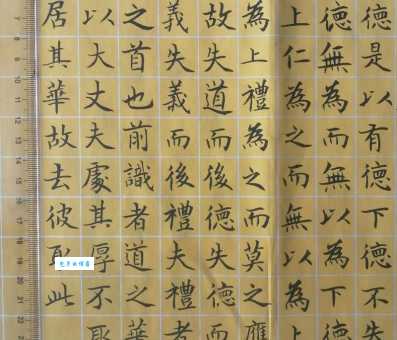 德是以有德下德不失
德無為而無以為下德
上仁為之而無以為上
為上禮為之而莫之應
故失道而後德失德而
義失義而後禮夫禮者
之首也前識者道之華
以大丈夫處其厚不
居其華故去彼取此